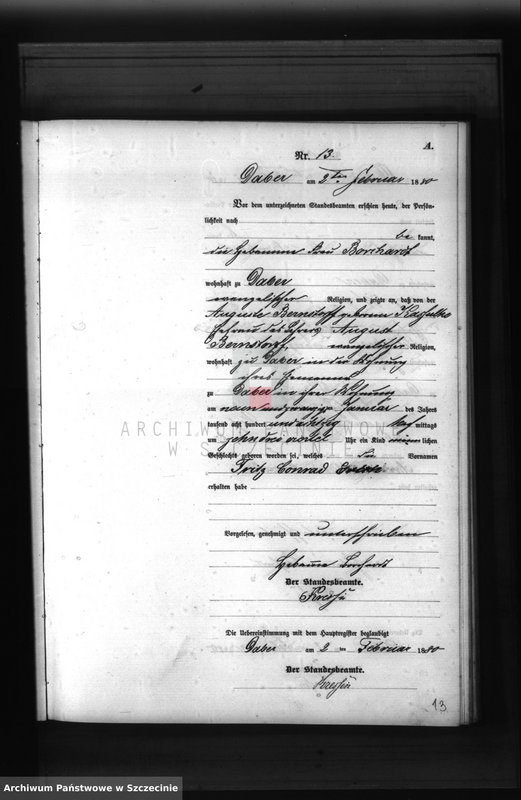 A.
Nr. 13.
Daber am 2ten Februar 1880
Vor dem unterzeichneten Standesbeamten erschien heute, der Persön-
lichkeit nach
be kannt,
die Hebamme Frau Borchardt
wohnhaft zu Daber
evangelischer Religion, und zeigte an, daß von der
Auguste Berndorff geborene
Ehefrau des Lehrers August
Berndorff evangelischer Religion,
wohnhaft zu Daber in der Wohnung
ihres Ehemanns
zu Daber in ihrer Wohnung
am neun und zwanzigsten Januar des Jahrs
tausend acht hundert und achtzig Vor mittags
um zehn drei viertel Uhr ein Kind männlichen
Geschlechts geboren worden sei, welches die Vornamen
Fritz Conrad
erhalten habe
Vorgelesen, genehmigt und unterschrieben
Hebamme Borchardt
Der Standesbeamte.
Die Uebereinstimmung mit dem Hauptregister beglaubigt
Daber am 2 ten Februar 1880
Der Standesbeamte.
13
ARCHIWUM PAŃSTWOWE
W SZCZECINIE
Archiwum Państwowe w Szczecinie